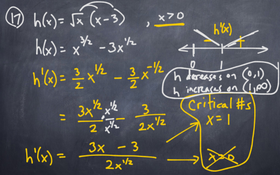 ⑰ h(x) = √x (x-3) , x>0
h(x) = x^{3/2} - 3x^{1/2}
h'(x)
+
0 1
h'(x) = 3/2 x^{1/2} - 3/2 x^{-1/2}
h decreases on (0,1)
h increases on (1,∞)
= 3x^{1/2}/2 · x^{1/2}/x^{1/2} - 3/2x^{1/2}
Critical #s
x = 1
h'(x) = 3x - 3/2x^{1/2}
x=0